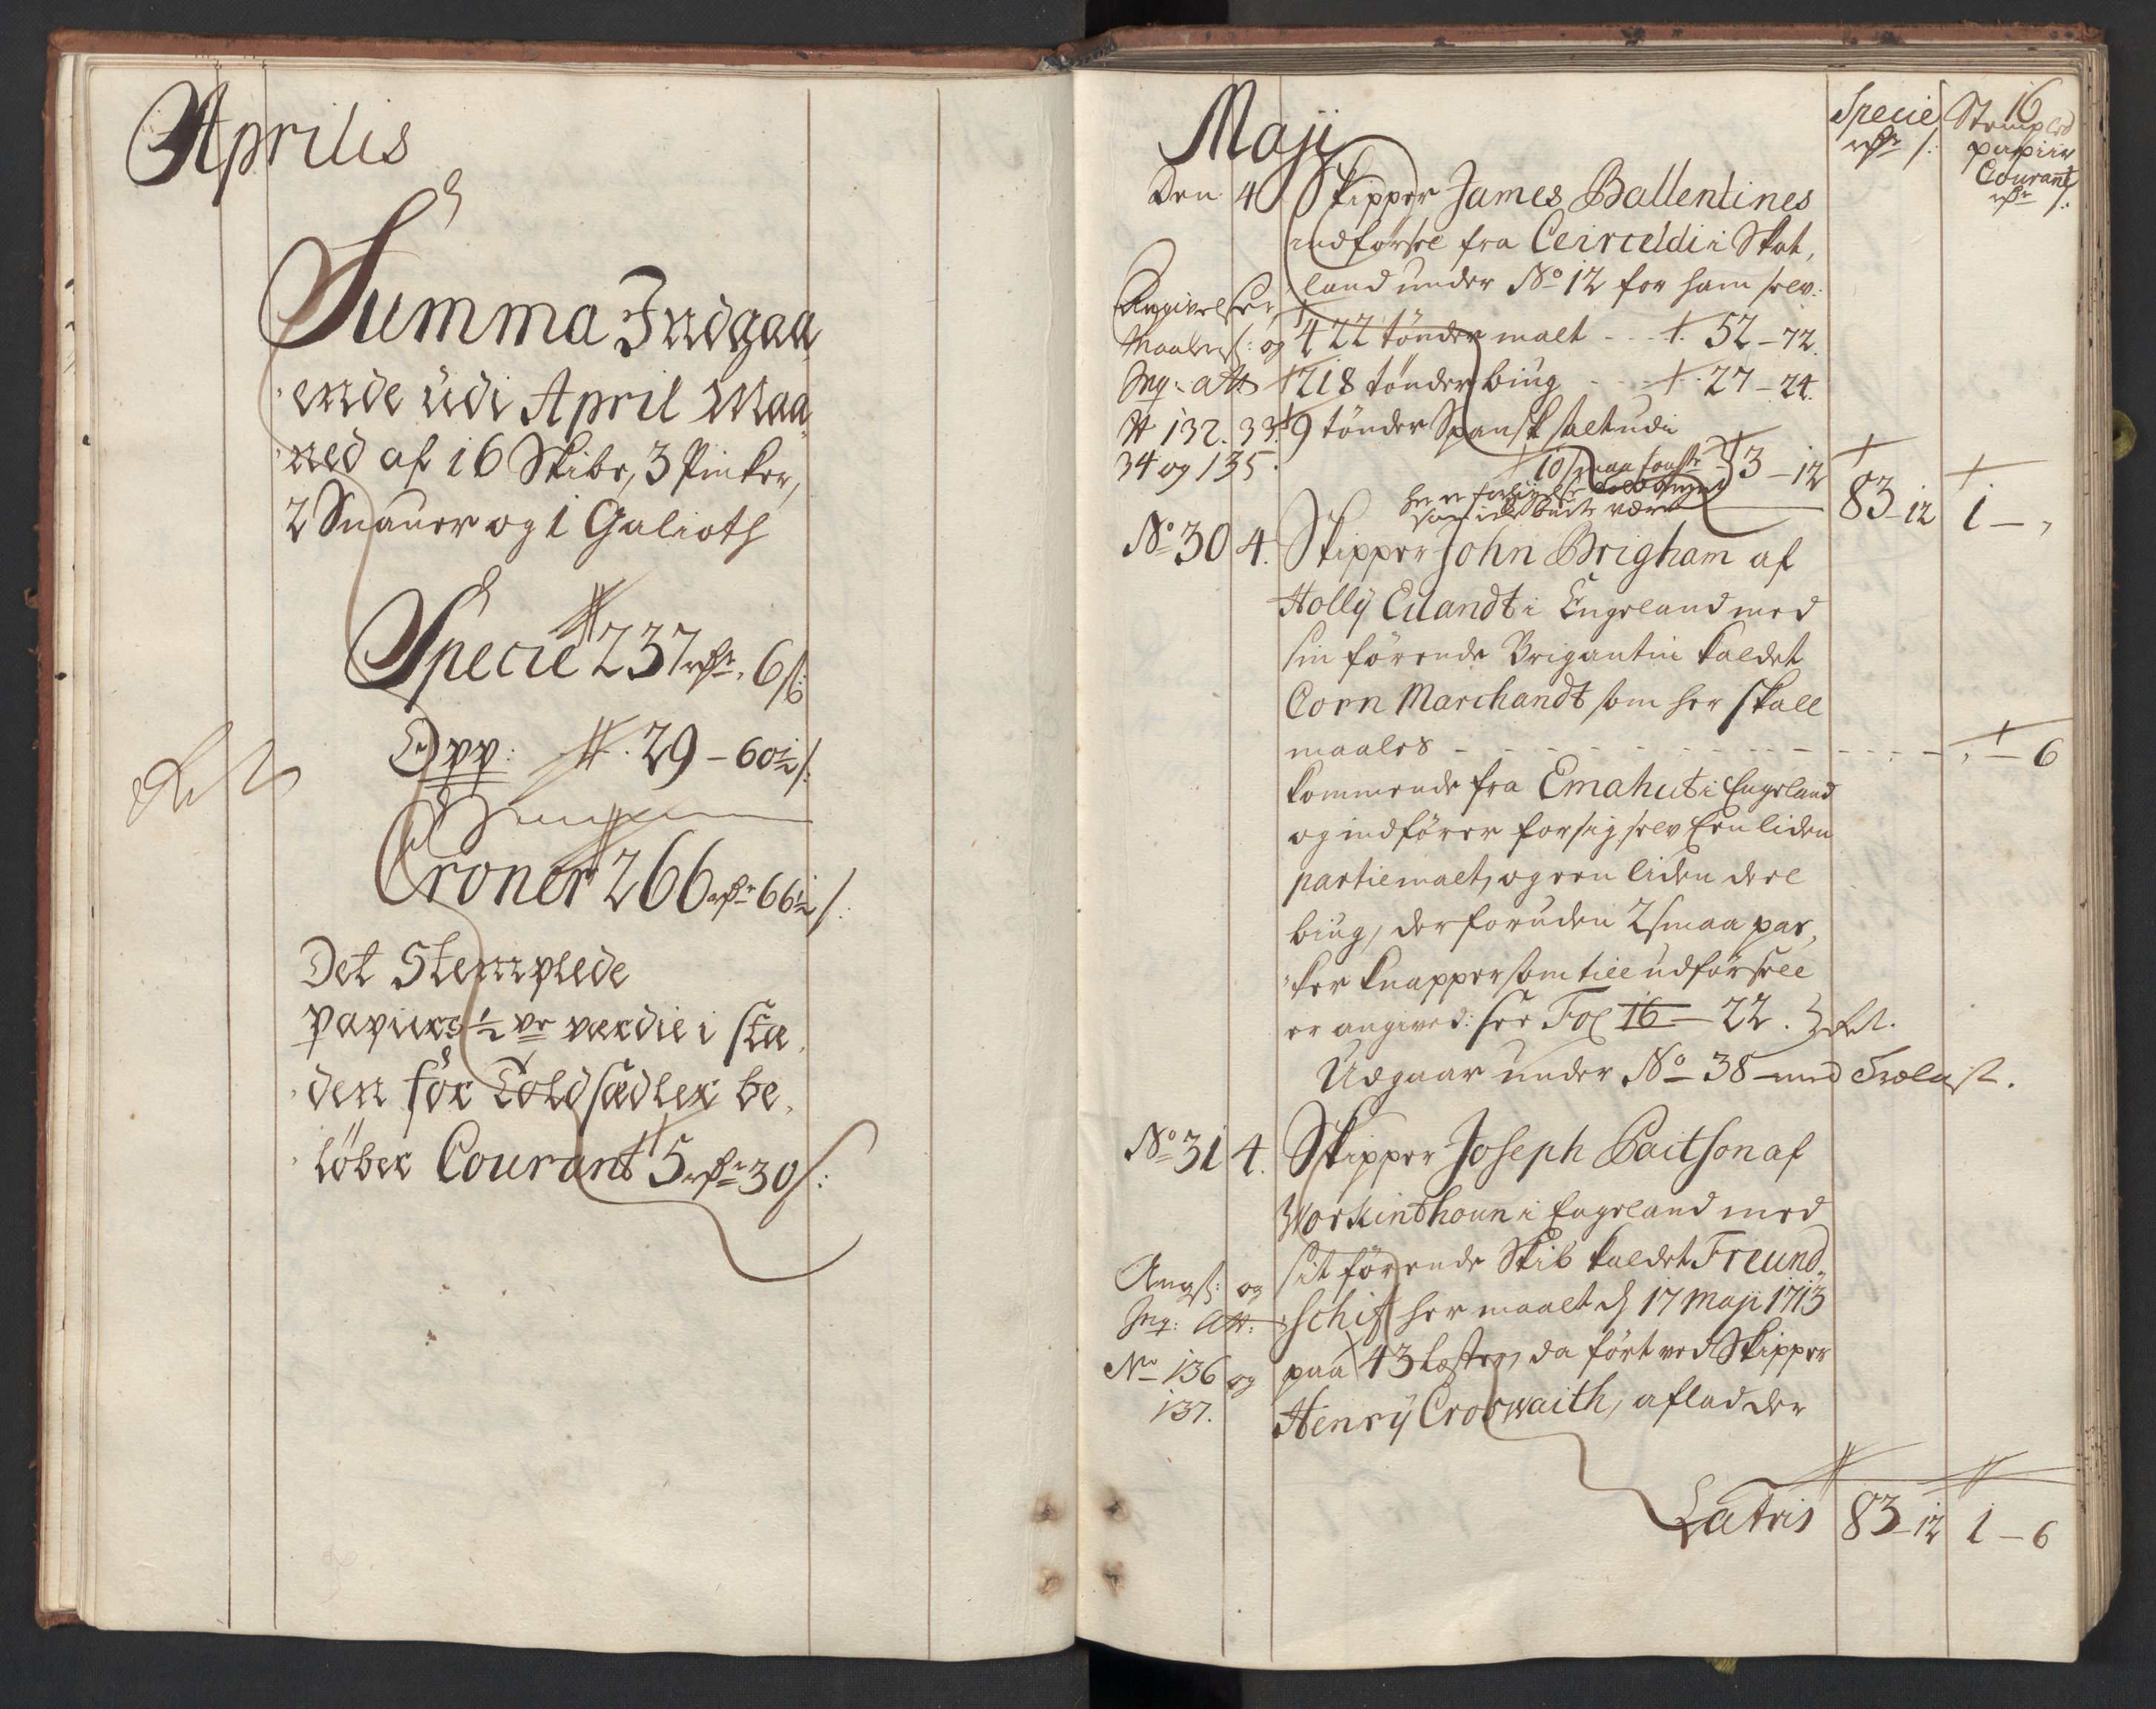 Aprilis
Summa Indgaa
ende udi April Maa
ned af 16 Skibe, 3 Pinker,
2 Snauer og 1 Galioth
Specie 237 rdr. 6 s:
Opp: 29 - 60½ s:
Croner 266 rdr 66½ s:
Det Stemplede
papiirs ½ pr værdie i stæ
den för Toldsædler be
löber Courant 5 rdr 30 s:
16
Maji
Specie
rdr s:
Stempled
papiir
Courant
rdr s:
Den 4 Skipper James Ballentines
indförsel fra Ceirceldi i Skot,
land under No 12 for ham selv:
Angivelser,
Maalers: og
Inq: Att
№ 132. 33.
34 og 135.
422 tönder malt - - - 52 - 72.
218 tönder biug - - - 27 - 24.
9 tönder Spansk salt udi
10 smaa 3 - 12
83 - 12 1 - „
No 30 4. Skipper John Brigham af
Holly Eilandt i Engeland med
sin förende Brigantin kaldet
Corn Marchandt som her skall
maales - - - - „ - 6
kommende fra Emahut i Engeland
og indförer for sig selv Een liden
partie malt, og een liden deel
biug, der foruden 2 smaa pac,
ker knapper som till udförsell
er angived: see Fol 16 - 22.
Udgaar under No 38 med Trælast.
No 31 4. Skipper Joseph Paitson af
Workinthoun i Engeland med
sit förende Skib kaldet Freund,
schif her maalt d 17 Maji 1713
paa 43 Læster, da fört ved Skipper
Henry Croswaith, aflad der
Angs: og
Inq: Att:
No 136 og
137.
Latris 83 - 12 1 - 6